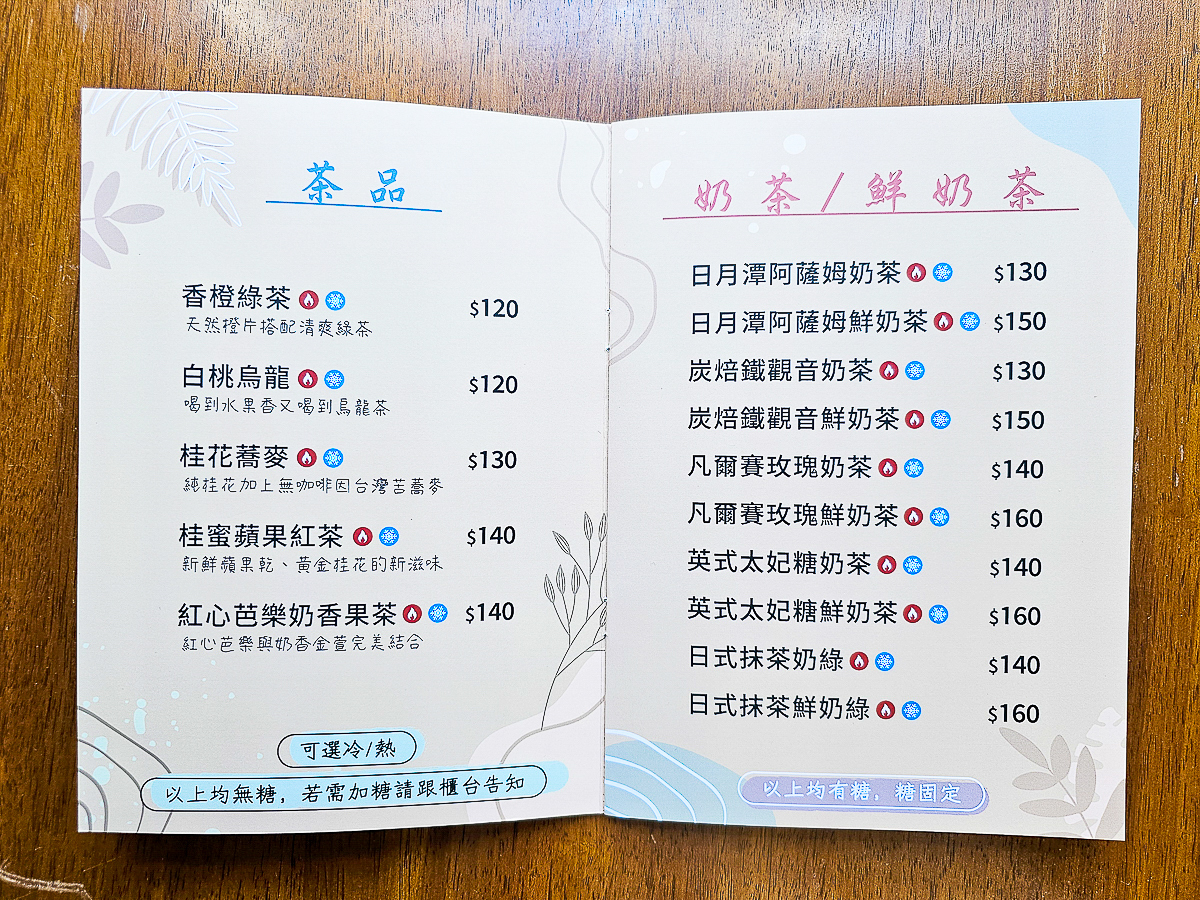 茶品
香橙綠茶 $120
天然橙片搭配清爽綠茶
白桃烏龍 $120
喝到水果香又喝到烏龍茶
桂花蕎麥 $130
純桂花加上無咖啡因台灣苦蕎麥
桂蜜蘋果紅茶 $140
新鮮蘋果乾、黃金桂花的新滋味
紅心芭樂奶香果茶 $140
紅心芭樂與奶香金萱完美結合
可選冷/熱
以上均無糖，若需加糖請跟櫃台告知
奶茶/鮮奶茶
日月潭阿薩姆奶茶 $130
日月潭阿薩姆鮮奶茶 $150
炭焙鐵觀音奶茶 $130
炭焙鐵觀音鮮奶茶 $150
凡爾賽玫瑰奶茶 $140
凡爾賽玫瑰鮮奶茶 $160
英式太妃糖奶茶 $140
英式太妃糖鮮奶茶 $160
日式抹茶奶綠 $140
日式抹茶鮮奶綠 $160
以上均有糖，糖固定